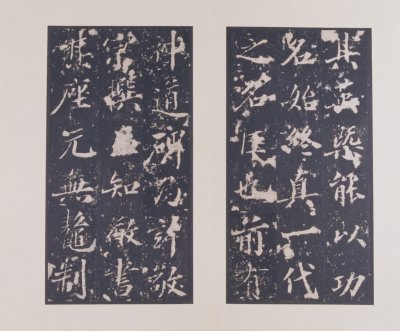 其英槩能以功
名始終真一代
之名臣也前有
神道碑乃許敬
宗譔王知敬書
其座元無龜制